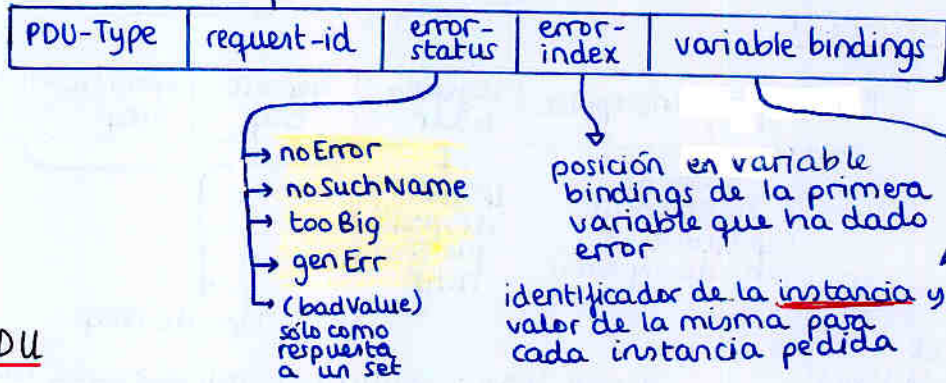 PDU-Type
request-id
error-
status
error-
index
variable bindings
→ noError
→ noSuchName
→ tooBig
→ genErr
→ (badValue)
sólo como
respuesta
a un set
posición en variable
bindings de la primera
variable que ha dado
error
identificador de la instancia y
valor de la misma para
cada instancia pedida
DU